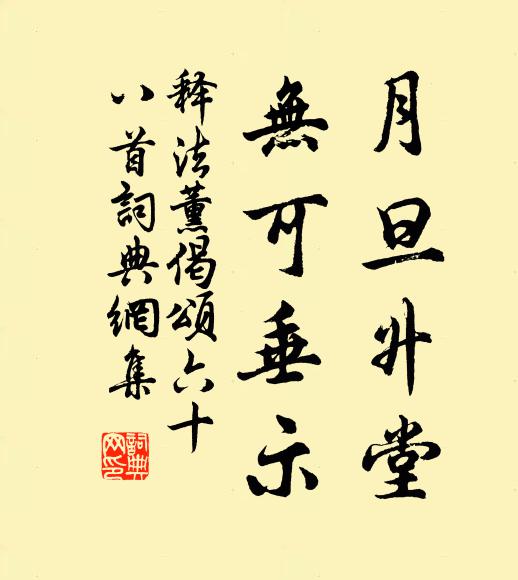 月旦升堂
無可垂示
释法薰偈頌六十
八首詞典網集
詞典網印